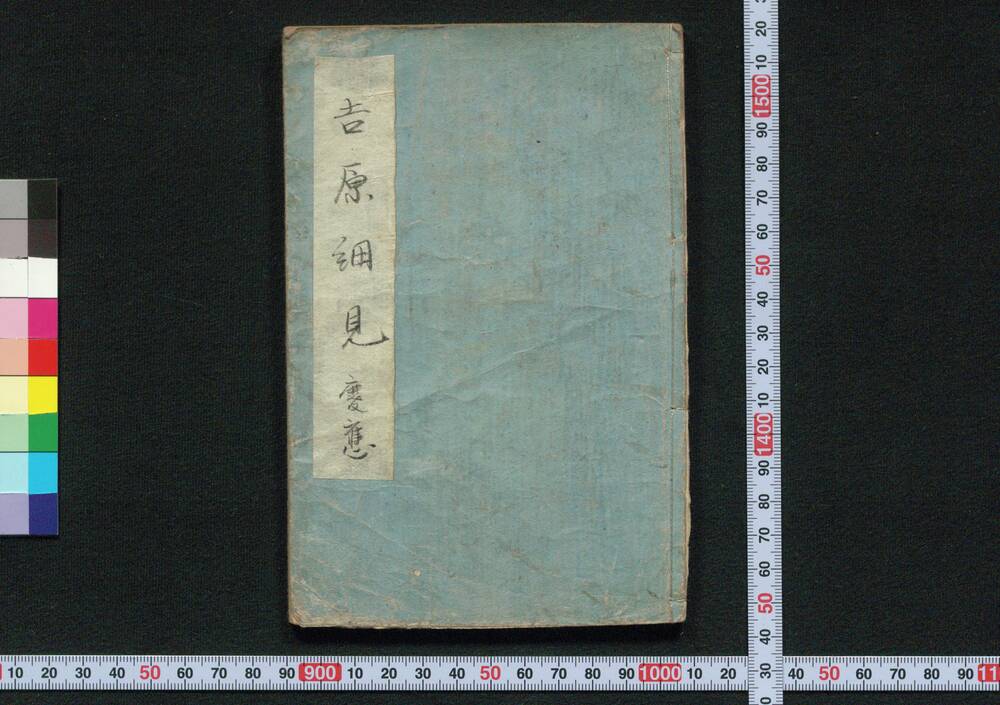 吉原細見 慶應
20
10
1500
90
80
70
60
50
40
30
20
10
1400
90
80
70
60
50
40
30
10 20 30 40 50 60 70 80 90 900 10 20 30 40 50 60 70 80 90 1000 10 20 40 50 60 70 80 90 11